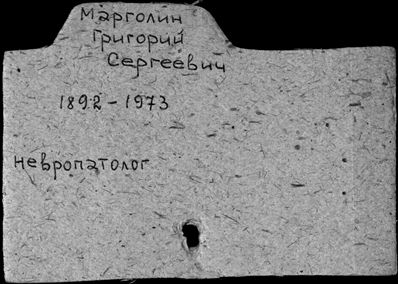 Марголин
Григорий
Сергеевич
1892-1973
невропатолог